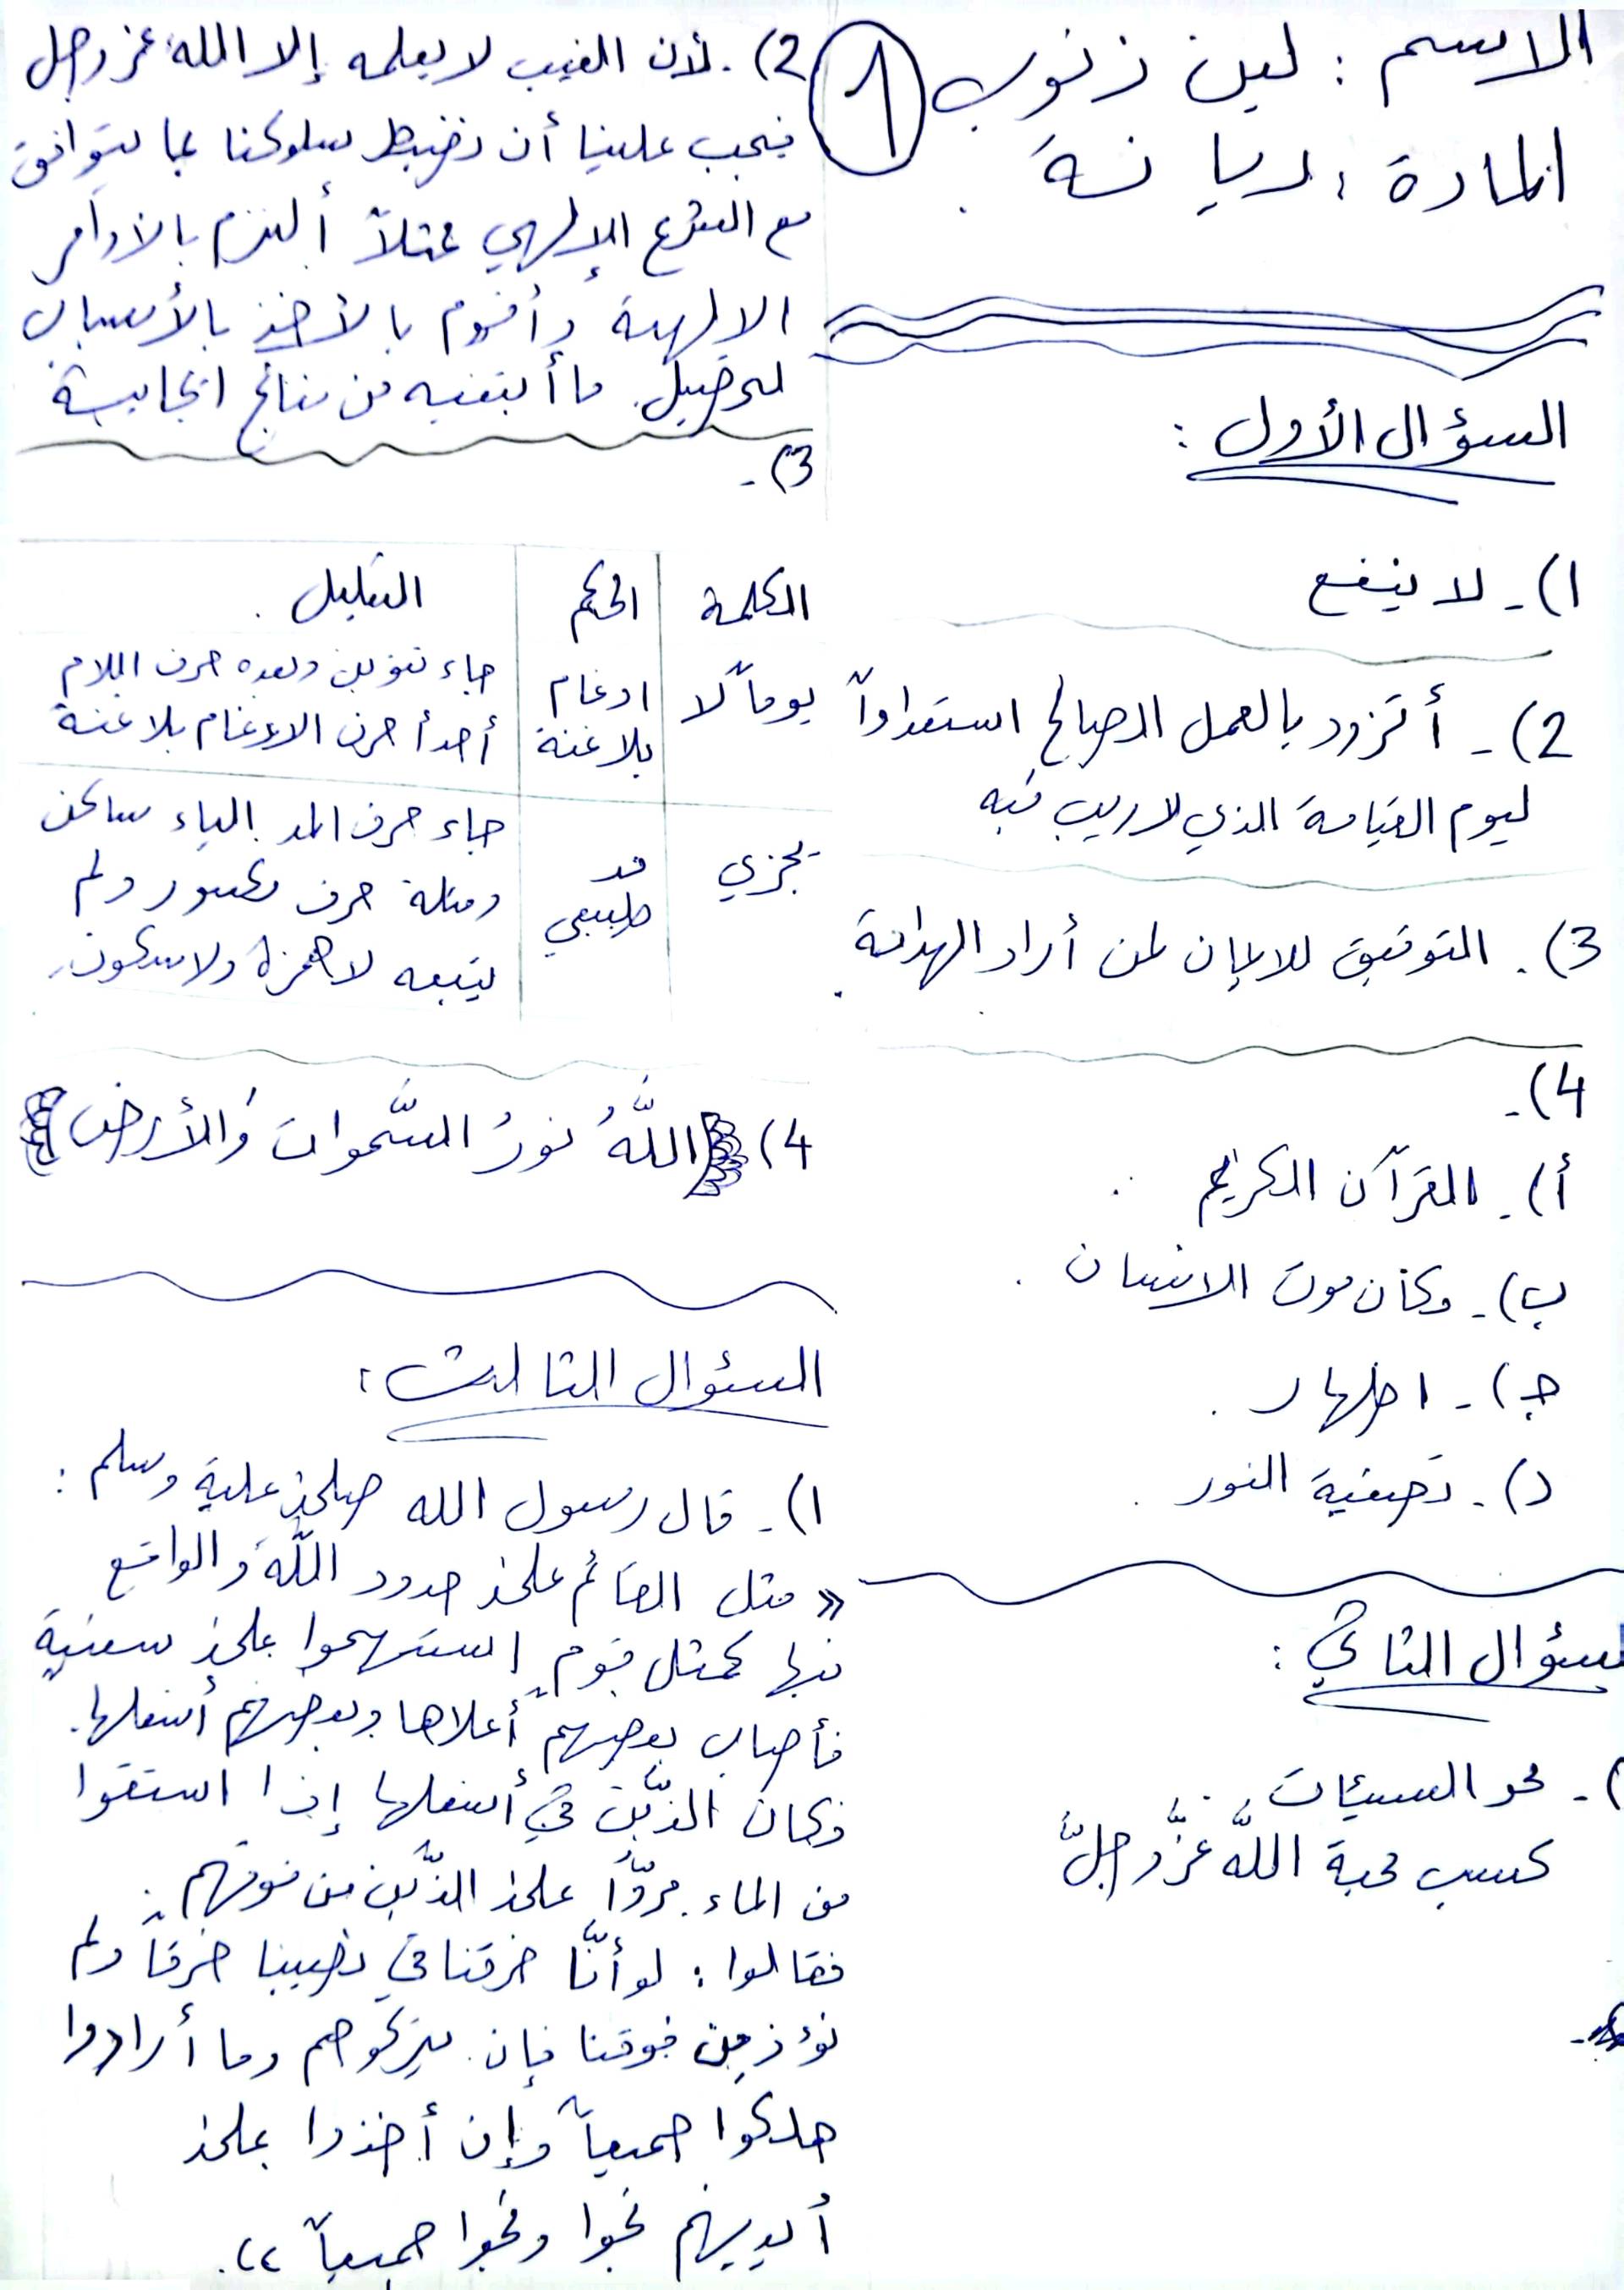 الاسم : لين زنوب
١
المادة : ديانة
السؤال الأول :
1)- لا ينفع
2)- أتزود بالعمل الصالح استعداداً
ليوم القيامة الذي لا ريب فيه
3). التوفيق للايمان لمن أراد الهداية
4)-
أ)- القرآن الكريم
ب)- مكان موت الانسان .
ج)- اظهار .
د)- تصفية النور .
السؤال الثاني :
)- محو السيئات
كسب محبة اللّه عزَّ وجلَّ
2). لأن الغيب لا يعلمه إلا الله عز وجل
فيجب علينا أن نضبط سلوكنا بما يتوافق
مع الشرع الإلهي فمثلاً ألتزم بالأوامر
الالهية وأقوم بالأخذ بالأسباب
لتحصيل ما أبتغيه من نتائج ايجابية
3)-
الكلمة الحكم التعليل .
يوماً لا ادغام بلا غنة جاء تنوين وبعده حرف اللام
أحد أحرف الادغام بلا غنة
يجزي مد طبيعي جاء حرف المد الياء ساكن
وقبله حرف مكسور ولم
يتبعه لا همزة ولا سكون.
4) {اللَّهُ نورُ السَّموات وَالأرض}
السؤال الثالث :
1)- قال رسول الله صلى عليه وسلم :
« مثل القائم على حدود اللّه والواقع
فيها كمثل قوم استهموا على سفينة
فأصاب بعضهم أعلاها وبعضهم أسفلها.
فكان الذّين في أسفلها إذا استقوا
من الماء مروّا على الذّين من فوقهم .
فقالوا : لو أنّا خرقنا في نصيبنا خرقاً ولم
نؤذ من فوقنا فإن يتركوهم وما أرادوا
هلكوا جميعاً وإن أخذوا على
أيديهم نجوا ونجوا جميعاً »